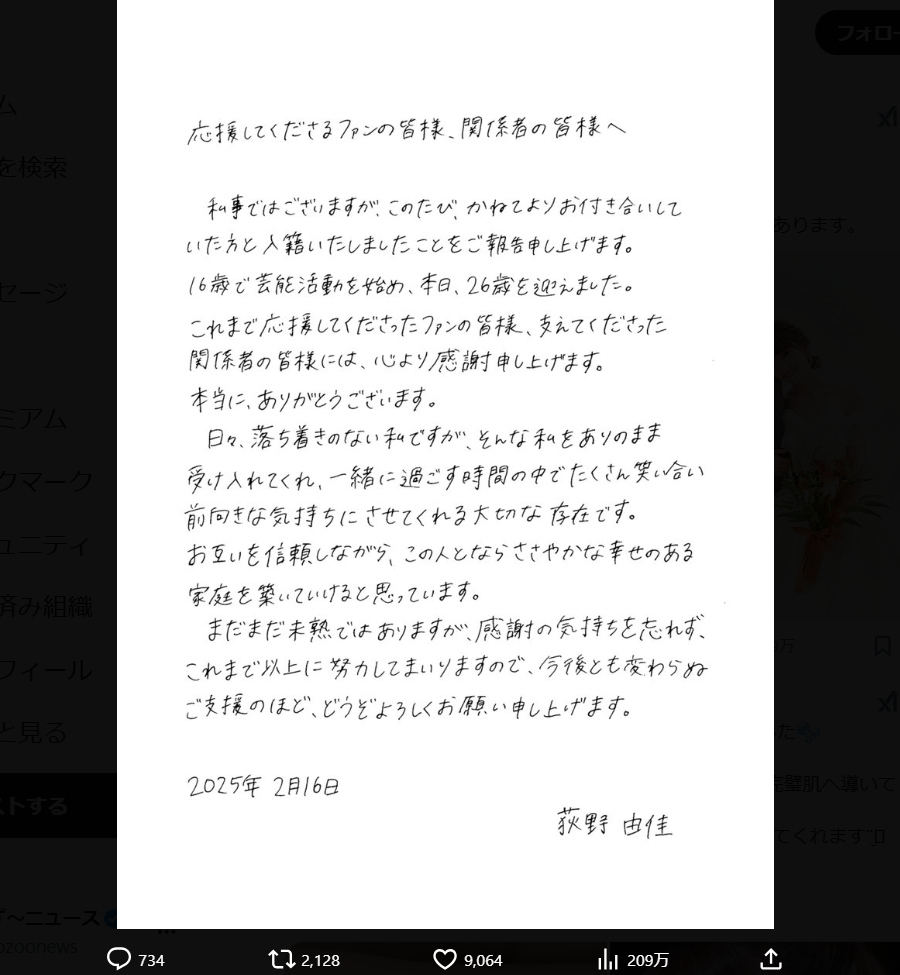 応援してくださるファンの皆様、関係者の皆様へ
私事ではございますが、このたび、かねてよりお付き合いして
いた方と入籍いたしましたことをご報告申し上げます。
16歳で芸能活動を始め、本日、26歳を迎えました。
これまで応援してくださったファンの皆様、支えてくださった
関係者の皆様には、心より感謝申し上げます。
本当に、ありがとうございます。
日々、落ち着きのない私ですが、そんな私をありのまま
受け入れてくれ、一緒に過ごす時間の中でたくさん笑い合い
前向きな気持ちにさせてくれる大切な存在です。
お互いを信頼しながら、この人とならささやかな幸せのある
家庭を築いていけると思っています。
まだまだ未熟ではありますが、感謝の気持ちを忘れず、
これまで以上に努力してまいりますので、今後とも変わらぬ
ご支援のほど、どうぞよろしくお願い申し上げます。
2025年 2月16日
荻野 由佳
フォロー
ム
を検索
セージ
ミアム
クマーク
ュニティ
済み組織
フィール
と見る
ストする
あります。
万
た
完璧肌へ導いて
てくれます
ニュース
ozoonews
734
2,128
9,064
209万